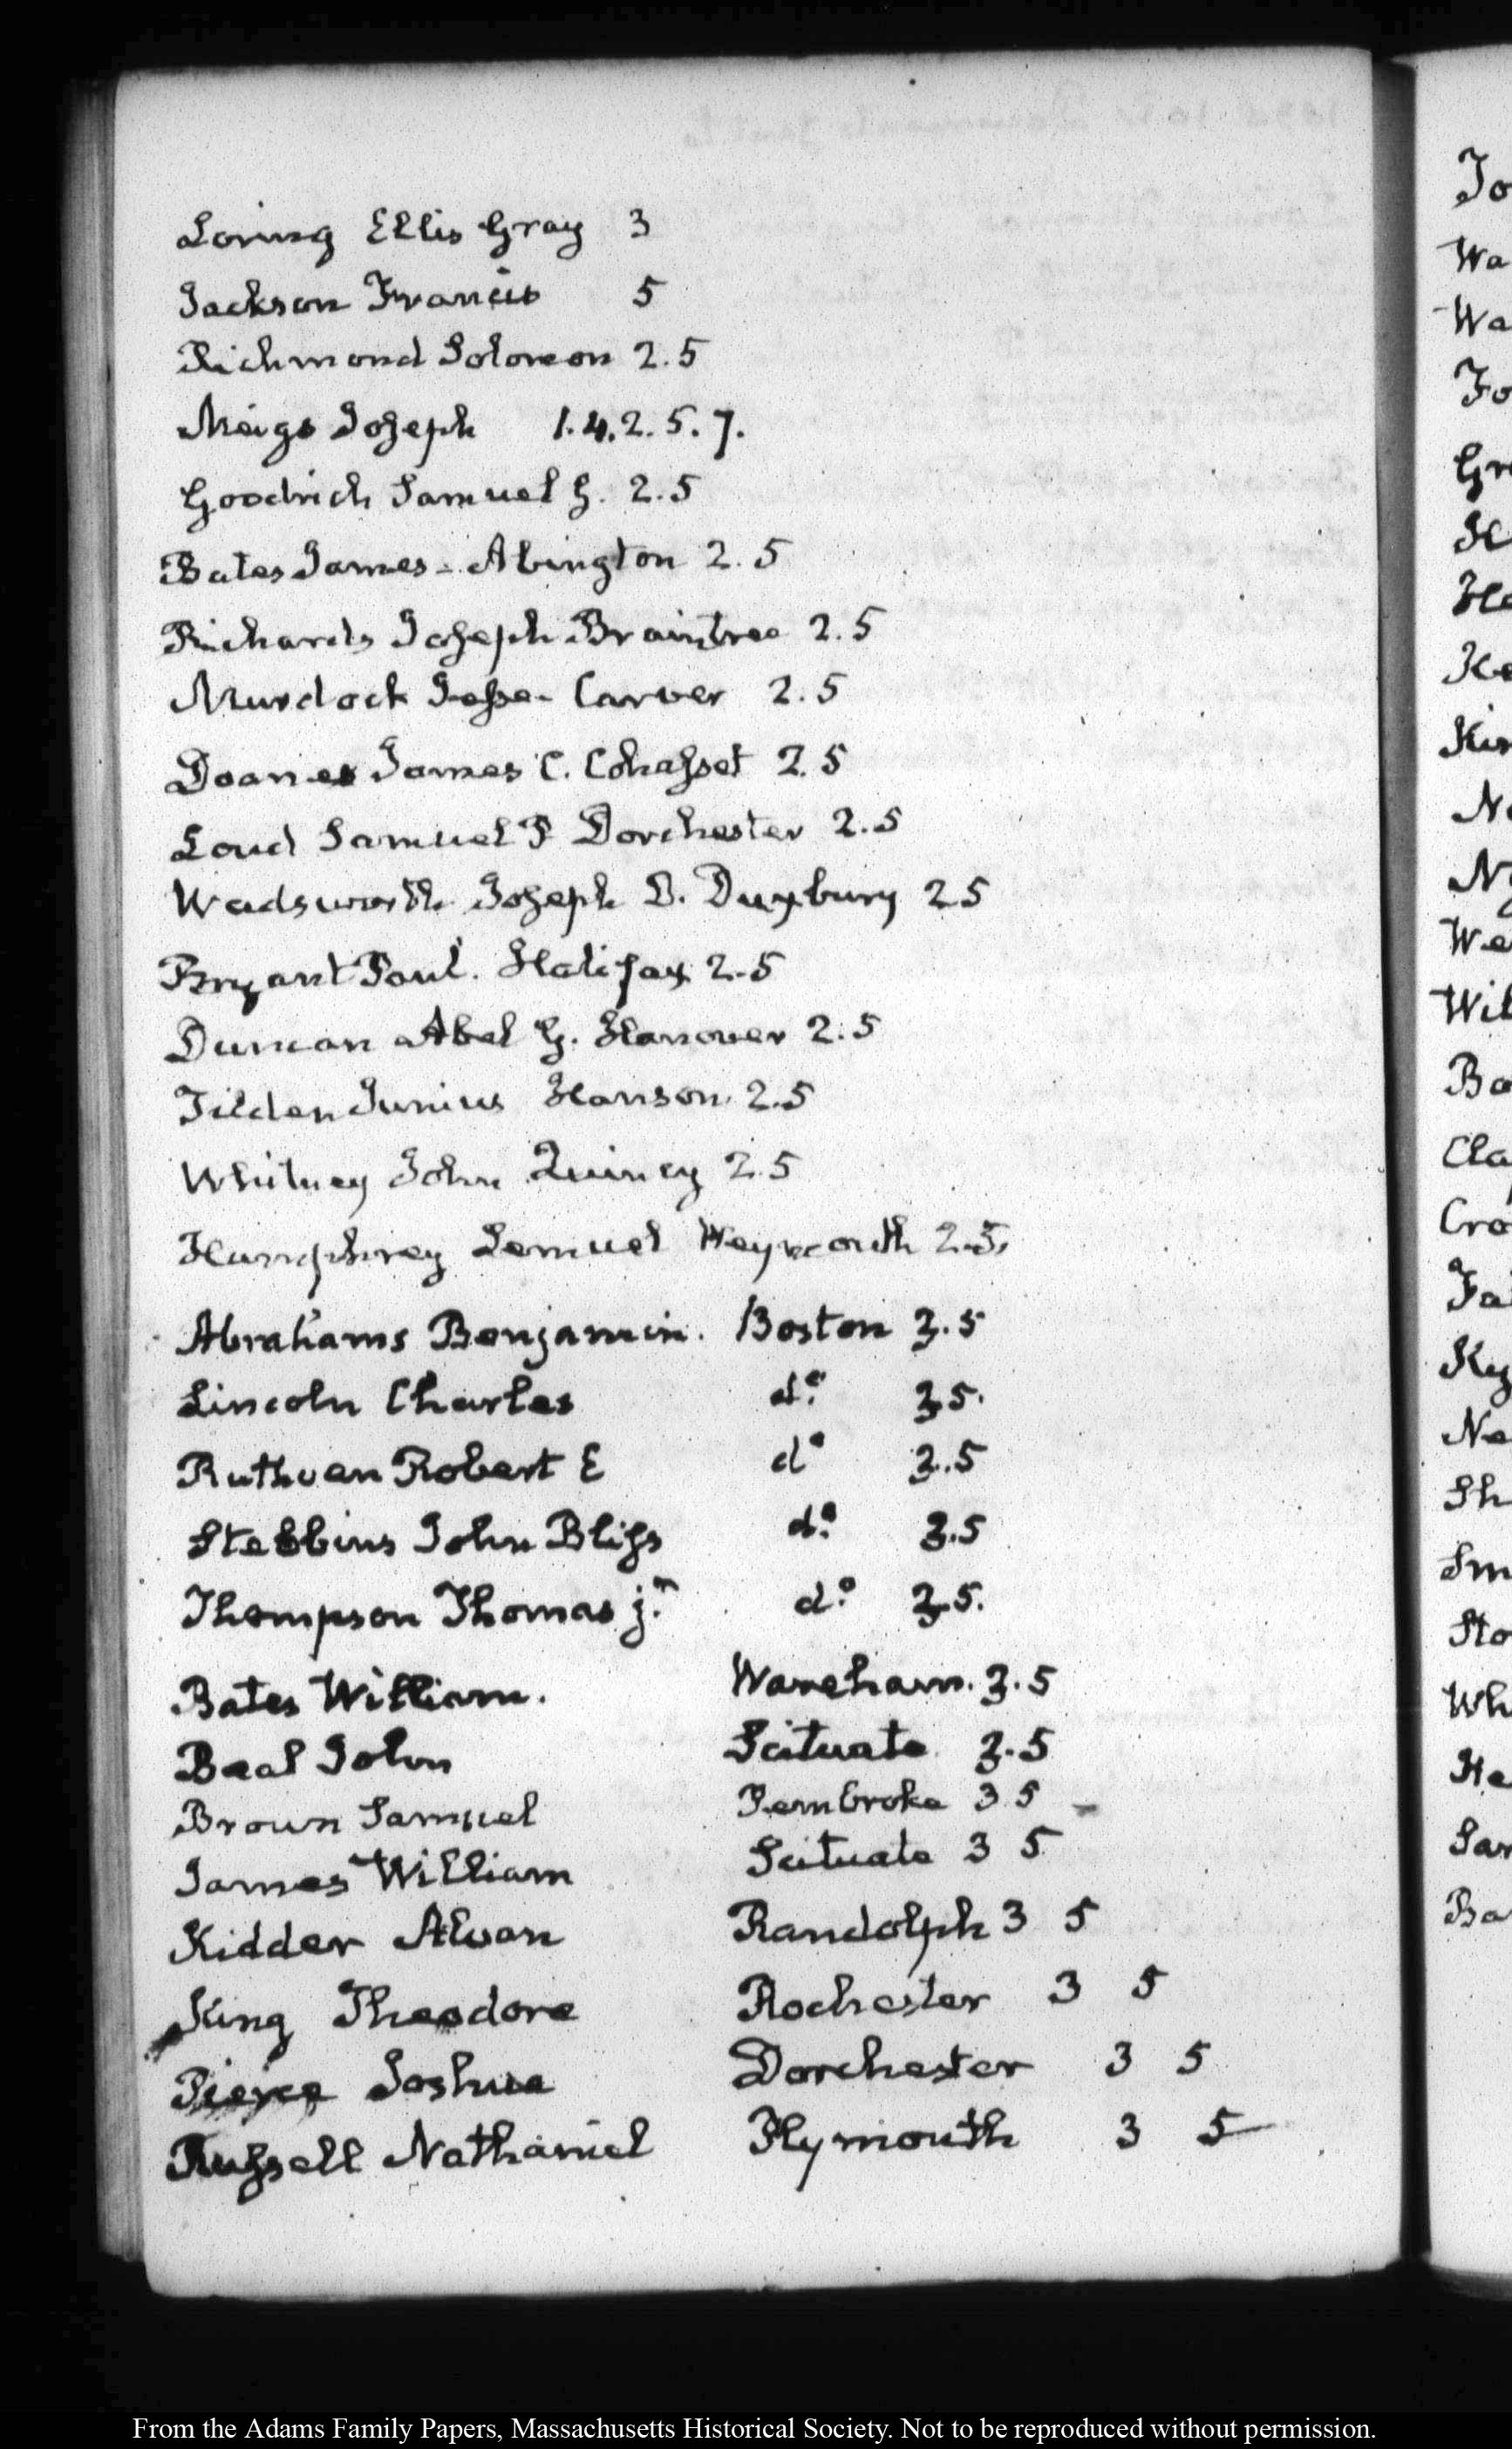 Loring Ellis Gray 3
Jackson Francis 5
Richmond Solomon 2.5
Meigs Joseph 1.4.2.5.7.
Goodrich Samuel G. 2.5
Bates James - Abington 2.5
Richards Joseph Braintree 2.5
Murdock Jesse - Carver 2.5
Doane James C. Cohasset 2.5
Loud Samuel P Dorchester 2.5
Wadsworth Joseph B. Duxbury 25
Bryant Paul. Halifax 2.5
Duncan Abel G. Hanover 2.5
Tilden Junius Hanson 2.5
Whitney John Quincy 2.5
Humphrey Lemuel Weymouth 2.5.
Abrahams Benjamin. Boston 3.5
Lincoln Charles do. 3.5.
Ruthven Robert E do 3.5
Stebbins John Bliss do. 3.5
Thompson Thomas jr. do. 3.5.
Bates William. Wareham. 3.5
Beal John Scituate 3.5
Brown Samuel Pembroke 3 5
James William Scituate 3 5
Kidder Alvan Randolph 3 5
King Theodore Rochester 3 5
Pierce Joshua Dorchester 3 5
Russell Nathaniel Plymouth 3 5
Jo
Wa
Wa
Fo
Gr
H
He
Ke
Kin
N
N
We
Wil
Ba
Cla
Cro
Fa
Ky
Ne
Sh
Sm
Sto
Wh
He
Sar
Ba
From the Adams Family Papers, Massachusetts Historical Society. Not to be reproduced without permission.